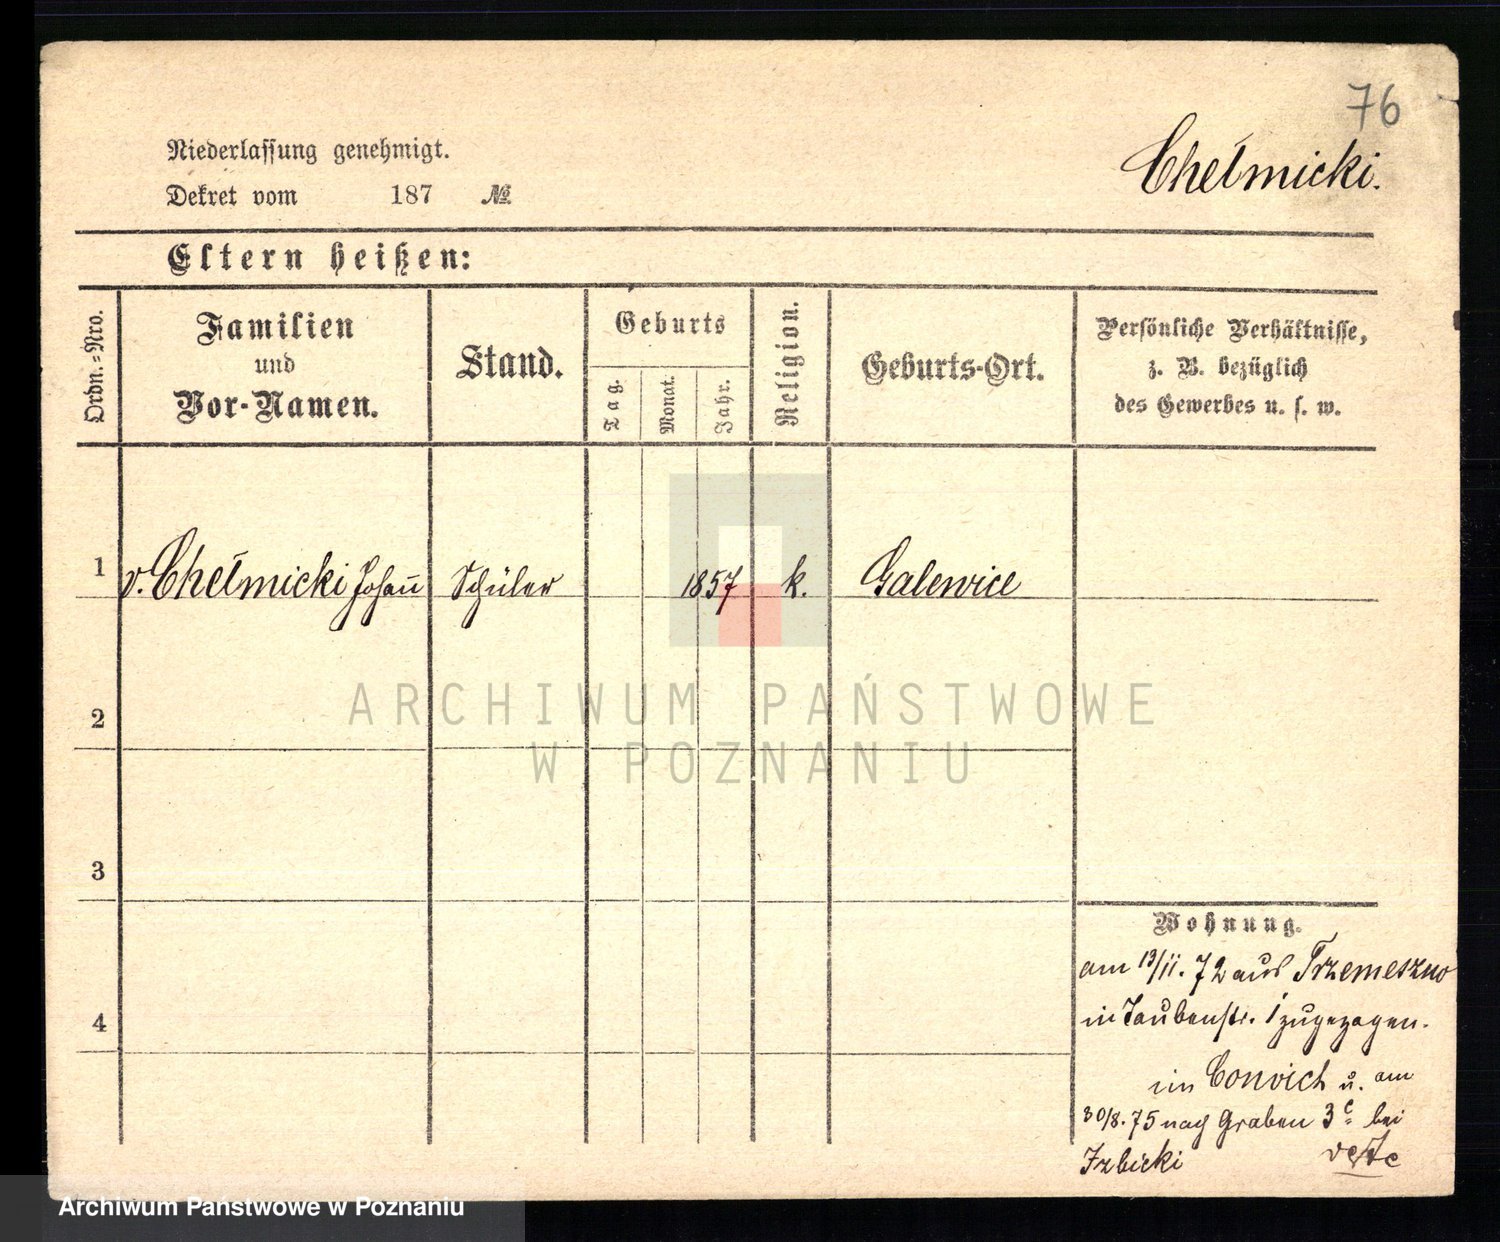 76
Chełmicki.
Niederlassung genehmigt.
Dekret vom 187 №
Eltern heißen:
Ordn.=Nro.
Familien
und
Vor-Namen.
Stand.
Geburts
Tag.
Monat.
Jahr.
Religion.
Geburts-Ort.
Persönliche Verhältnisse,
z. B. bezüglich
des Gewerbes u. s. w.
1 v. Chełmicki Johann Schüler 1857 k. Galewice
ARCHIWUM PAŃSTWOWE
W POZNANIU
2
3
4
Wohnung.
am 13/11. 72 aus Trzemeszno
in Taubenstr. 1 zugezogen.
im Convict u. am
30/8. 75 nach Graben 3c bei
Izbicki
Archiwum Państwowe w Poznaniu